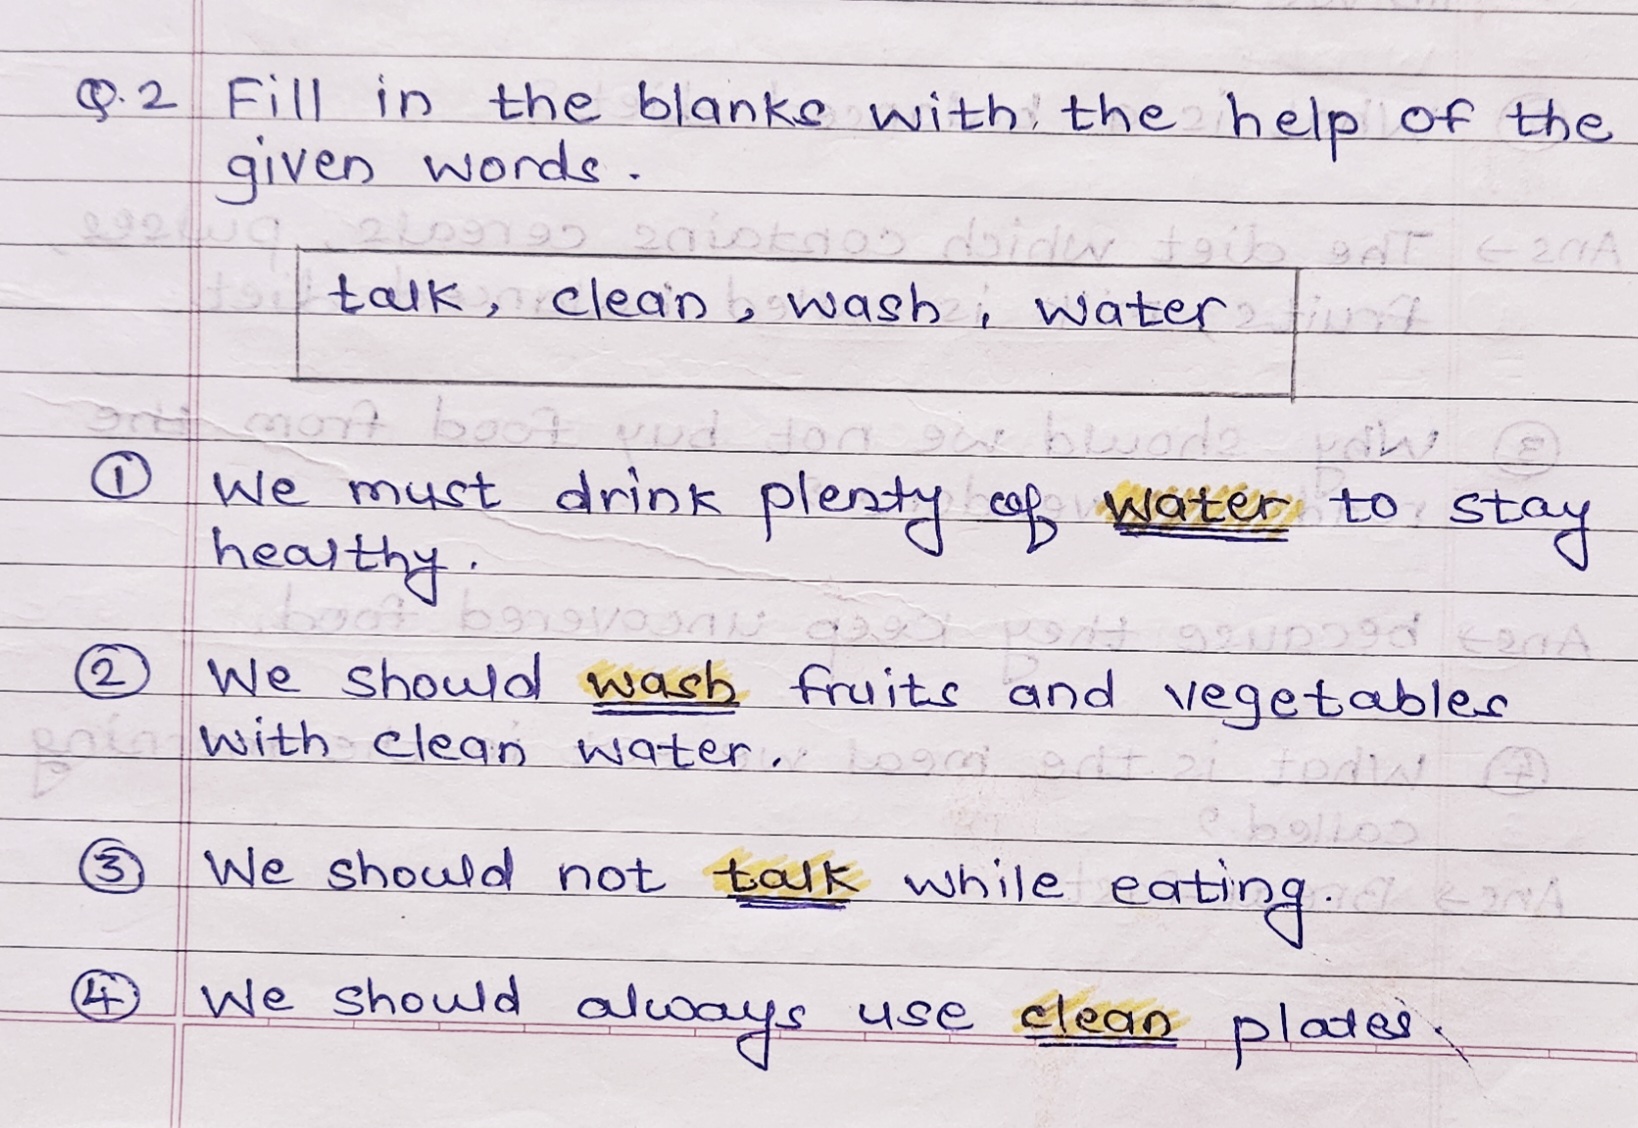 Q.2 Fill in the blanks with the help of the
given words.
talk, clean, wash, water
① We must drink plenty of water to stay
healthy.
② We should wash fruits and vegetables
with clean water.
③ We should not talk while eating.
④ We should always use clean plates.